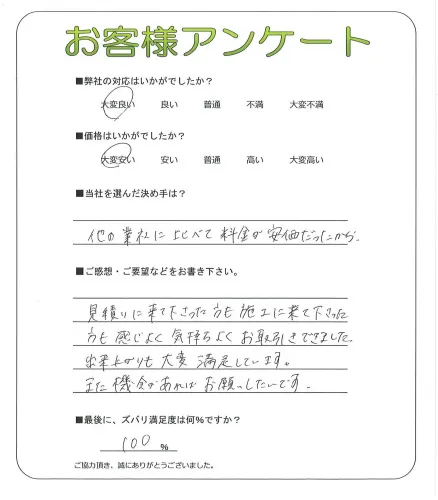 お客様アンケート
■弊社の対応はいかがでしたか？
大変良い 良い 普通 不満 大変不満
■価格はいかがでしたか？
大変安い 安い 普通 高い 大変高い
■当社を選んだ決め手は？
他の業社に比べて料金が安価だったから.
■ご感想・ご要望などをお書き下さい。
見積りに来て下さった方も施工に来て下さった
方も感じよく気持ちよくお取引きできました.
出来上がりも大変満足しています。
また機会があればお願いしたいです.
■最後に、ズバリ満足度は何％ですか？
100 ％
ご協力頂き、誠にありがとうございました。